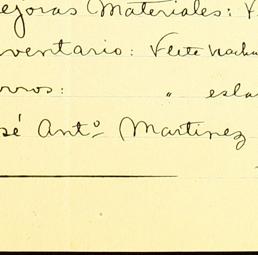 ejoras Materiales: V
nventario: Flete
rros: " esla
sé Antº Martinez